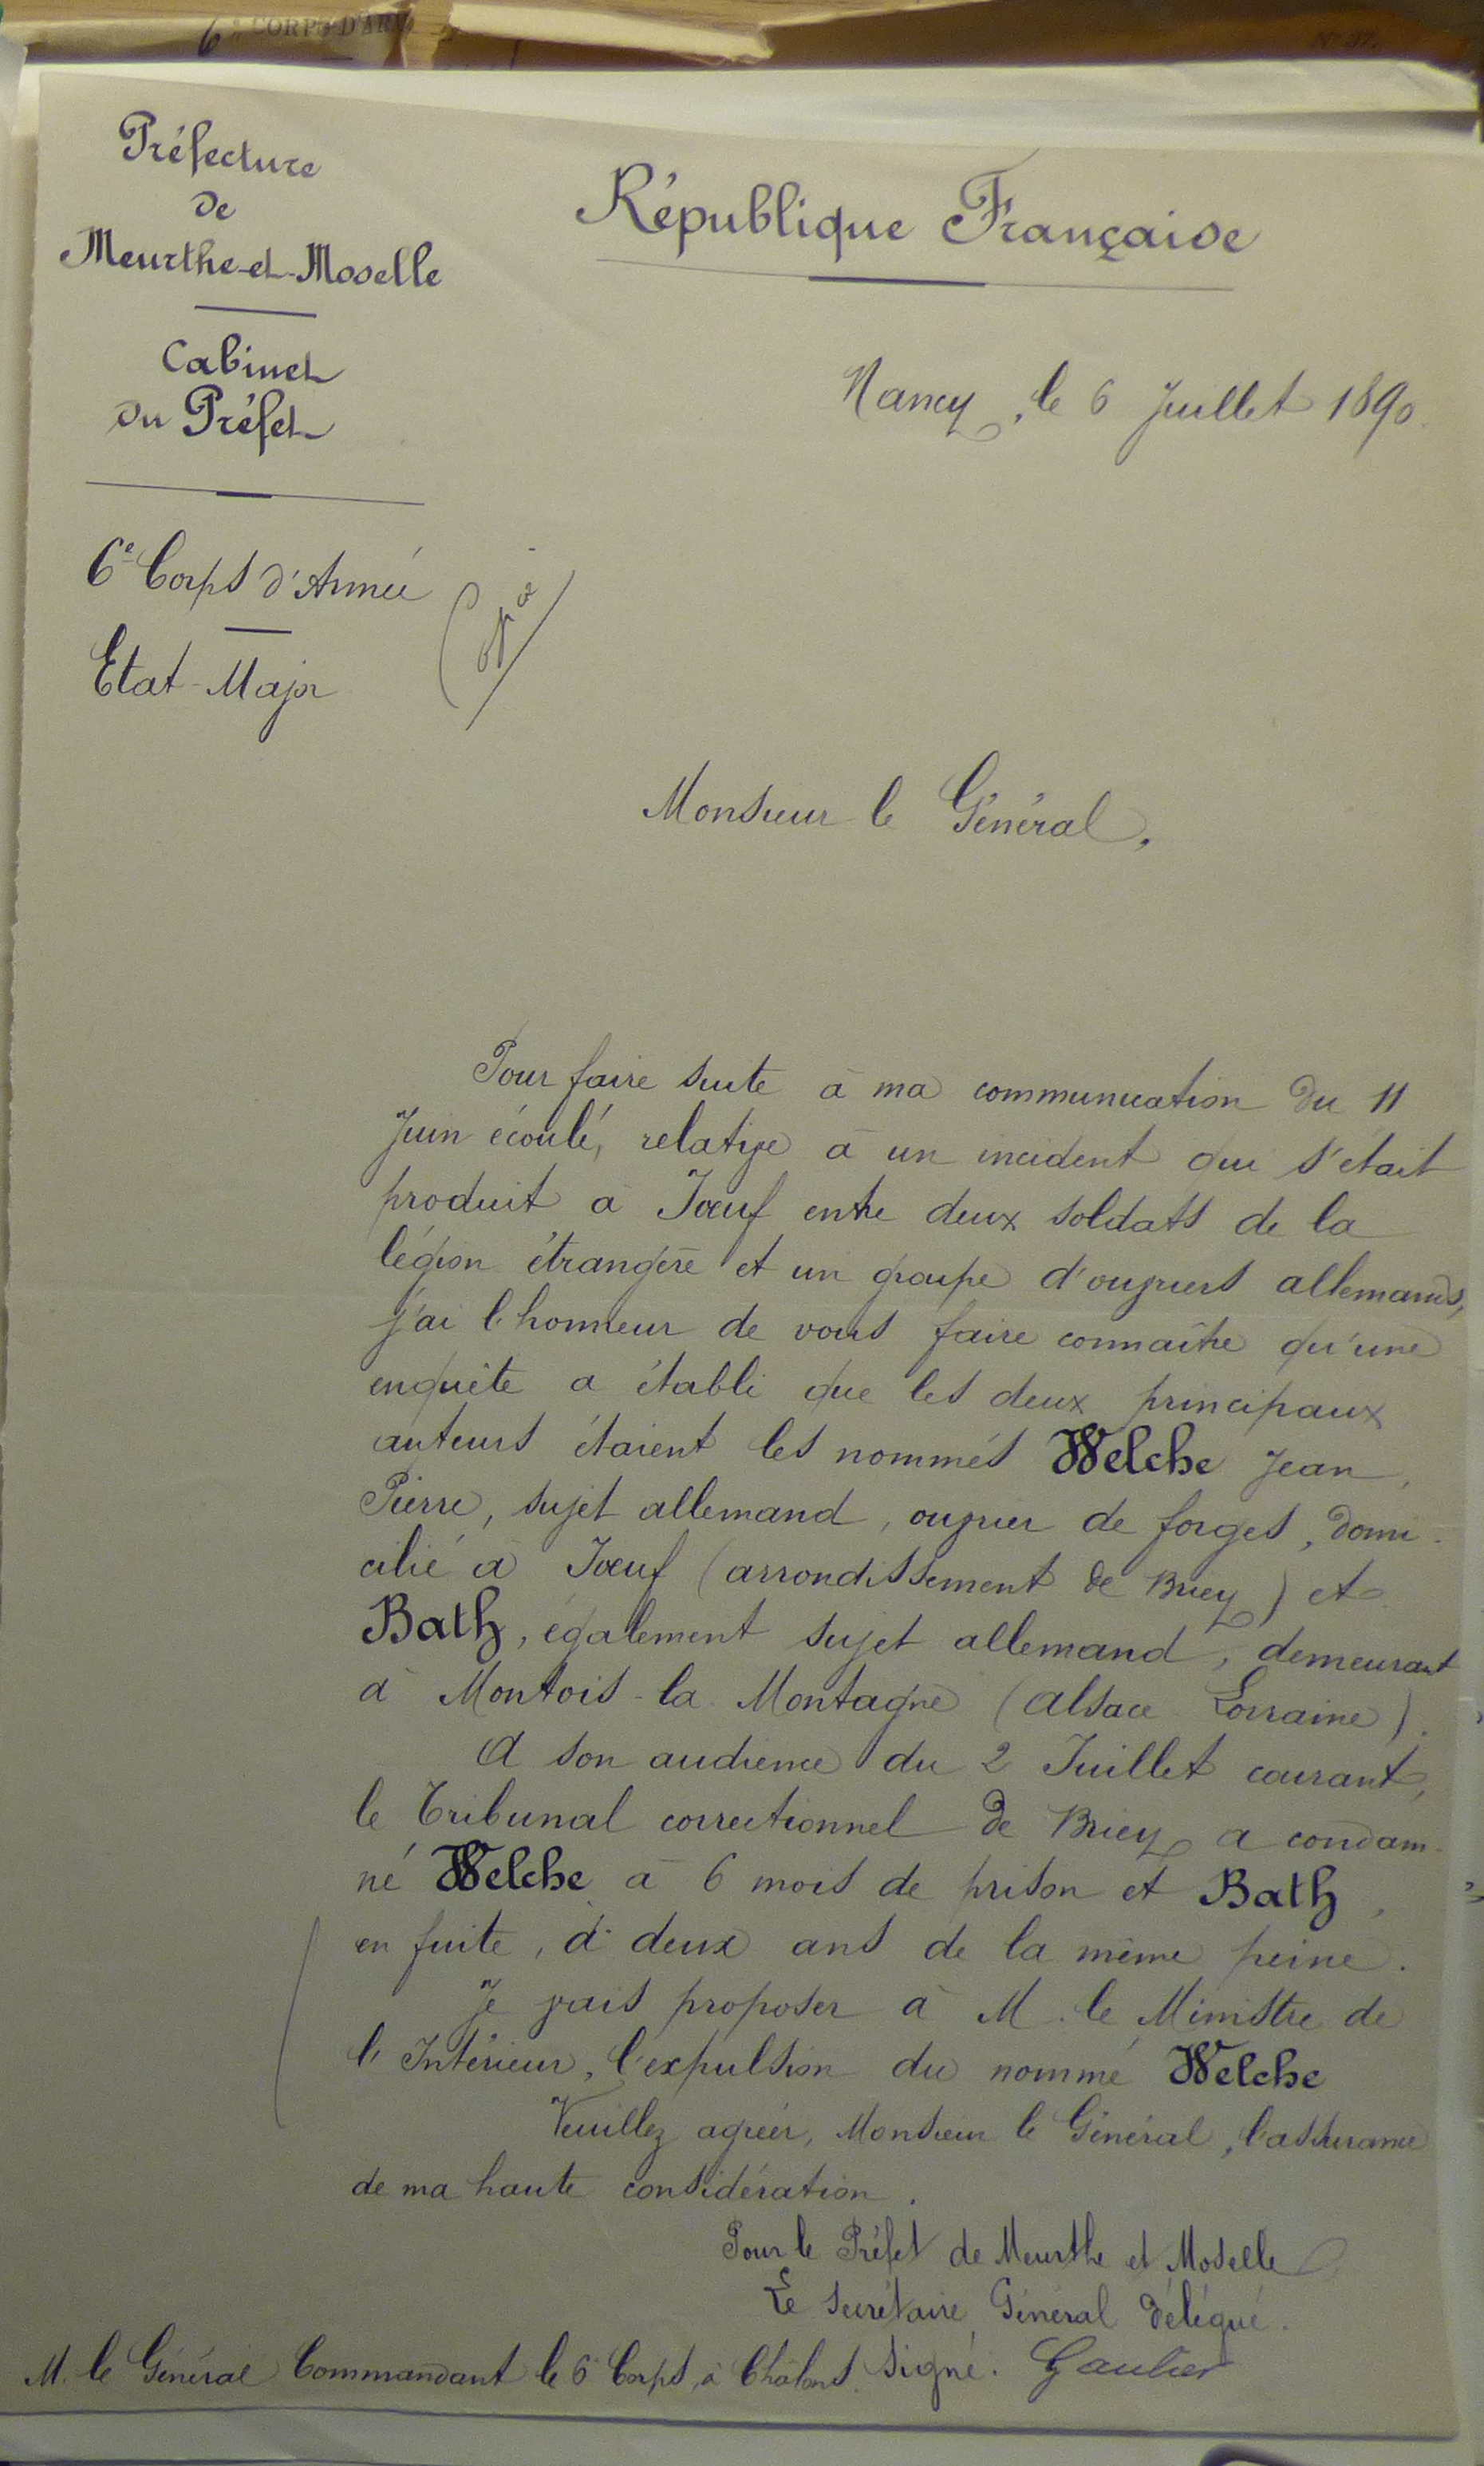 6e CORPS D'ARM
No 37.
Préfecture
de
Meurthe-et-Moselle
Cabinet
du Préfet
République Française
Nancy, le 6 Juillet 1890.
6e Corps d'Armée
Etat-Major
Copie
Monsieur le Général,
Pour faire suite à ma communication du 11
Juin écoulé, relative à un incident qui s'était
produit à Joeuf entre deux soldats de la
légion étrangère et un groupe d'ouvriers allemands,
j'ai l'honneur de vous faire connaître qu'une
enquête a établi que les deux principaux
auteurs étaient les nommés Welche Jean,
Pierre, sujet allemand, ouvrier de forges, domi-
cilié à Joeuf (arrondissement de Briey) et
Bath, également sujet allemand, demeurant
à Montois-la-Montagne (Alsace Lorraine).
A son audience du 2 Juillet courant,
le Tribunal correctionnel de Briey a condam-
né Welche à 6 mois de prison et Bath,
en fuite, à deux ans de la même peine.
Je vais proposer à M. le Ministre de
l'Intérieur, l'expulsion du nommé Welche
Veuillez agréer, Monsieur le Général, l'assurance
de ma haute considération.
Pour le Préfet de Meurthe et Moselle
Le Secrétaire Général délégué.
Signé. Gaulier
M. le Général Commandant le 6e Corps, à Châlons.